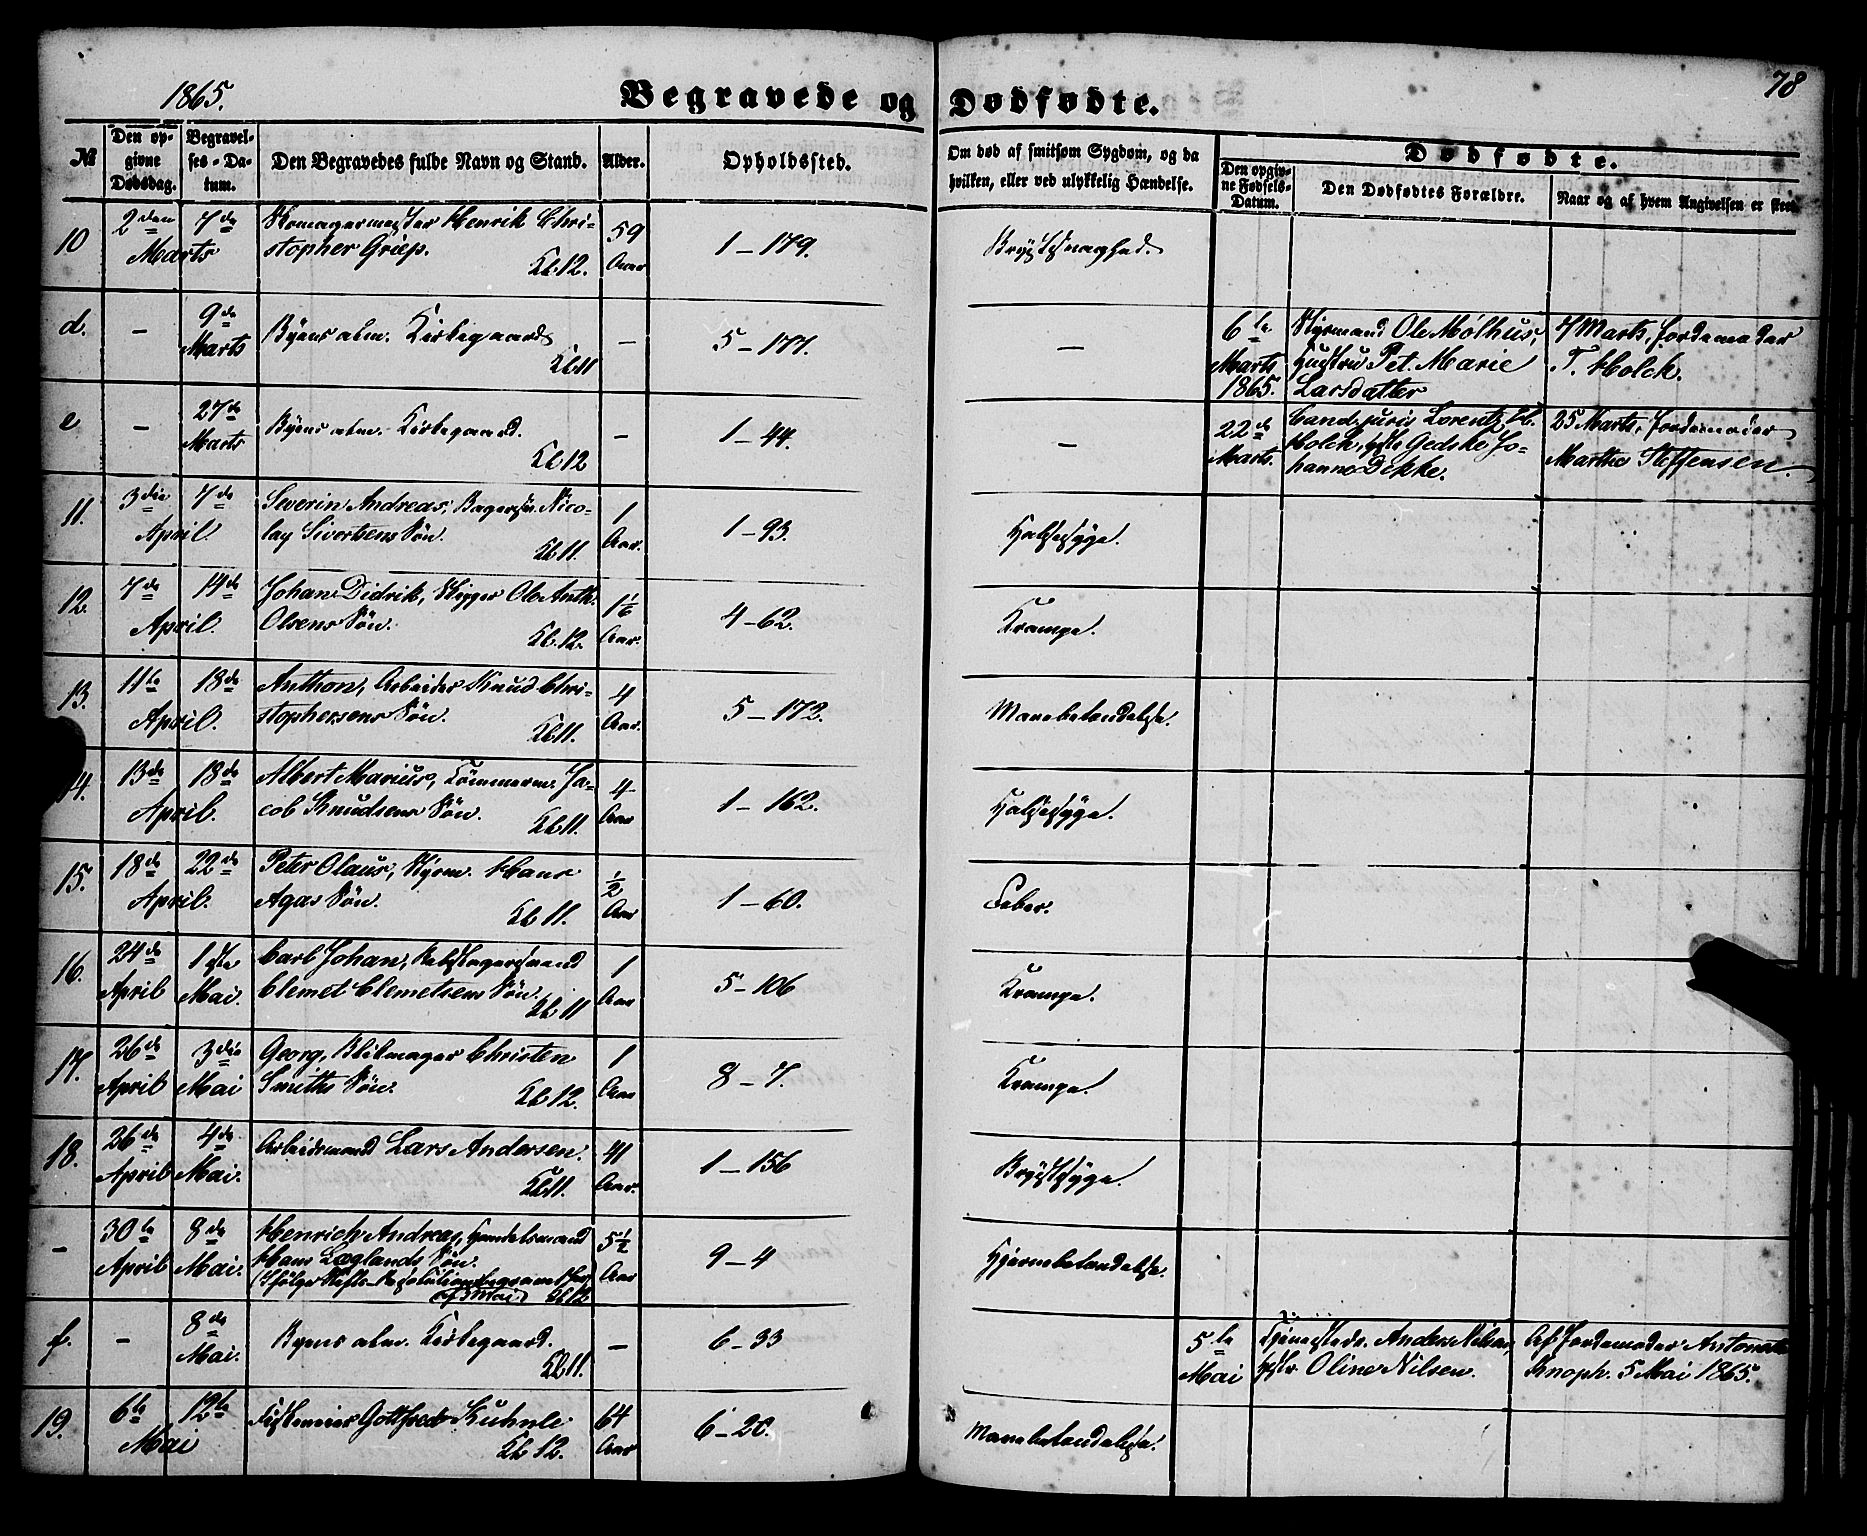 1865.
Begravede og Dødfødte.
78
№
Den opgivne Dødsdag.
Begravelses-Datum.
Den Begravedes fulde Navn og Stand.
Alder.
Opholdssted.
Om død af smitsom Sygdom, og da hvilken, eller ved ulykkelig Hændelse.
Dødfødte.
Den opgivne Fødsels-Datum.
Den Dødfødtes Forældre.
Naar og af hvem Angivelsen er skeet.
10
2den 7de
Marts
Skomagermester Henrik Chri-
stopher Griep.
Kl. 12.
59
Aar
1 – 179.
Brystsvaghed.
d.
–
9de
Marts
Byens alm. Kirkegaard
Kl 11
–
5 – 177.
–
6te
Marts
1865.
Styrmand Ole Mølhus,
Hustru Pet. Marie
Larsdatter
7 Marts, Jordemoder
T. Holck.
e
–
27de
Marts
Byens alm. Kirkegaard.
Kl 12
–
1 – 44.
–
22de
Marts.
Cand. juris Lorentz
Holck, Gedske Jo-
hanne Dekke.
25 Marts, Jordemoder
Marthe Steffensen.
11.
3die 7de
April
Severin Andreas, Nico-
lay Sivertsens Søn.
Kl 11.
1
Aar.
1 – 93.
Halssyge.
12.
7de 14de
April.
Johan Didrik, Skipper Ole Anth.
Olsens Søn.
Kl. 12.
1 1/6
Aar.
4 – 62.
Krampe.
13.
11te 18de
April.
Anthon, Arbeider Knud Chri-
stophersens Søn.
Kl 11.
4
Aar.
5 – 172.
Mavebetændelse.
14.
13de 18de
April.
Albert Marius, Tømmerm. Ja-
cob Knudsens Søn.
Kl 11.
4
Aar
1 – 162.
Halssyge.
15.
18de 22de
April.
Peter Olaus, Styrm. Hans
Agas Søn.
Kl 11.
1/2
Aar
1 – 60.
Feber.
16.
24de 1ste
April Mai.
Carl Johan, Rebslagersvend
Clemet Clemetsens Søn.
Kl 11
1
Aar
5 – 106
Krampe.
17.
26de 3die
April Mai
Georg, Blikmager Christen
Smiths Søn.
Kl 12.
1
Aar
8 – 7.
Krampe.
18.
26de 4de
April Mai.
Arbeidsmand Lars Andersen.
Kl 11.
41
Aar.
1 – 156
Brystsyge.
–
30te 8de
April Mai.
Henrich Andreas, Handelsmand
Hans Løglands Søn.
(Ifølge Stifts-Resolution
af 3 Mai) Kl 12
5 1/2
Aar
9 – 4
Hjernebetændelse.
f.
–
8de
Mai.
Byens alm. Kirkegaard.
Kl 11.
–
6 – 33
5te
Mai
Anders Nilsen,
Oline Nilsen.
Af Jordemoder Antonette
Knoph. 5 Mai 1865.
19.
6te 12te
Mai
Gottfred Kühnle
Kl 12.
64
Aar
6 – 20.
Mavebetændelse.